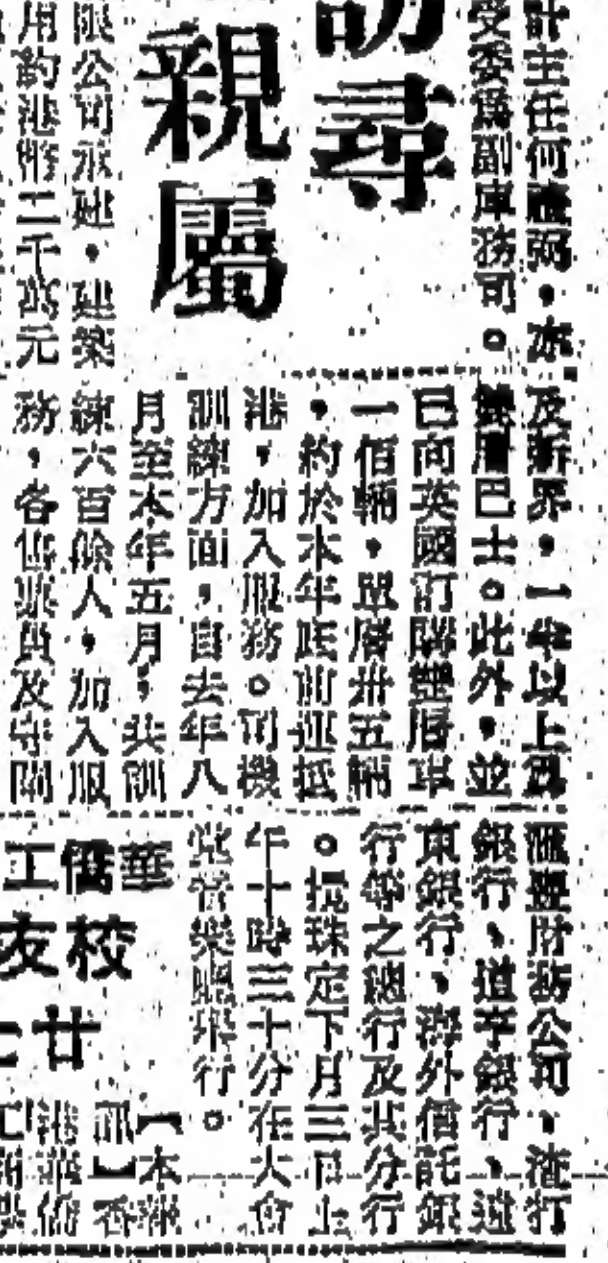 計主任何
受委為副庫務司。
訪尋
親屬
限公司承建,建築
用約港幣二千萬元
及新界,一半以上為
雙層巴士。此外,並
已向英國訂購雙層車
一佰輛,單層卅五輛
,約於本年底前運抵
港,加入服務。司機
訓練方面,自去年八
月至本年五月,共訓
練六百餘人,加入服
務,各售票員及守閘
滙豐財務公司、渣打
銀行、道亨銀行、遠
東銀行、海外信託銀
行等之總行及其分行
。攪珠定下月三日上
午十時三十分在大會
堂音樂廳舉行。
華僑工
校友
廿七
【本報
訊】香
港華僑